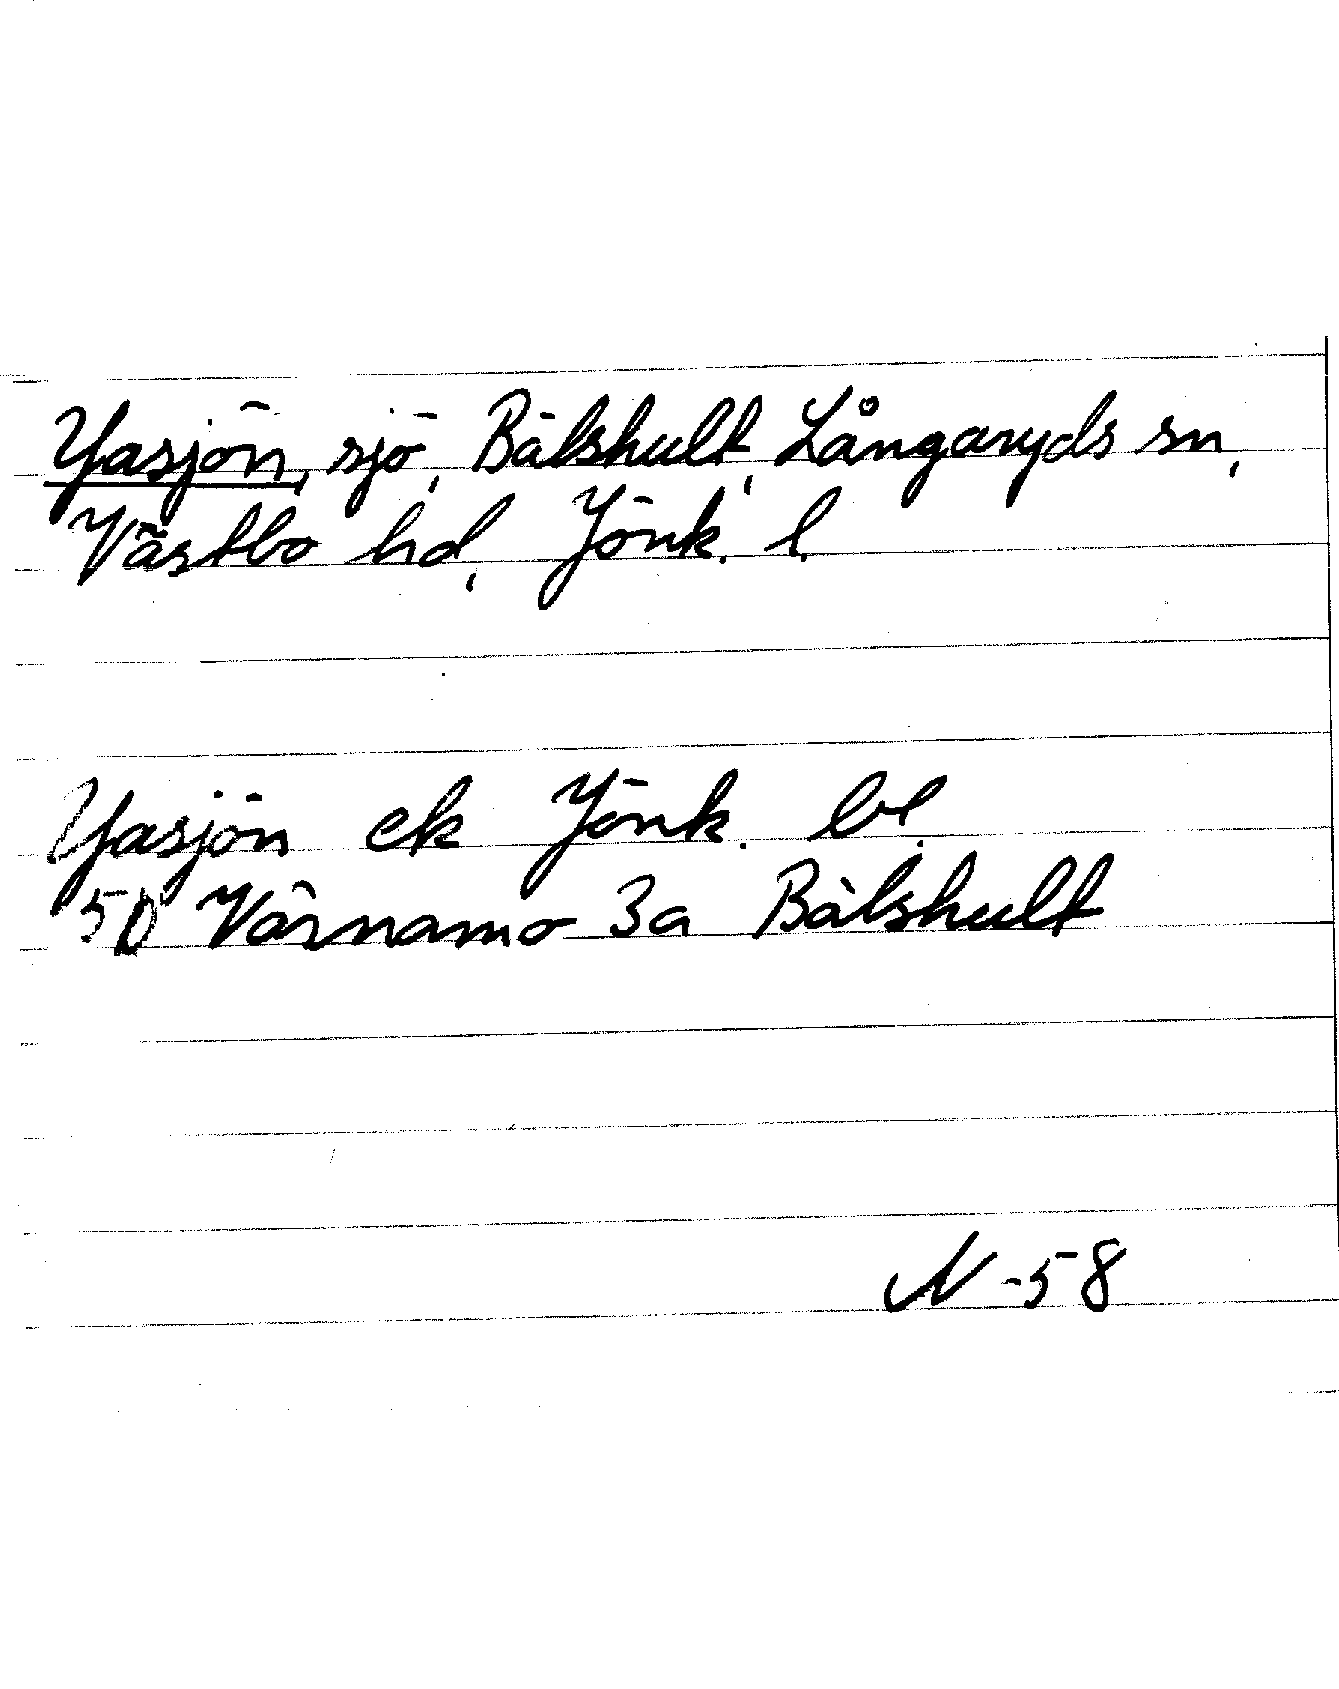 Yasjön, sjö, Bälshult, Långaryds sn,
Västbo hd, Jönk. l.
Yasjön ek Jönk. bl.
5D Värnamo 3a Bälshult
N-58